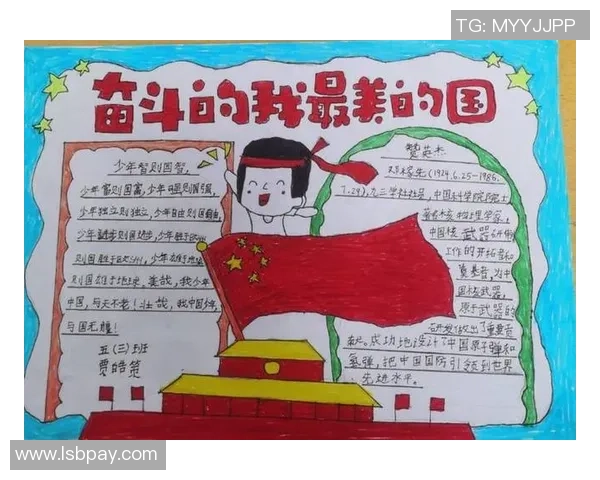 TG: MYYJJPP
奋斗的我最美的国
少年智则国智,
少年富则国富,少年强则国强,
少年独立则独立,少年自由则国自由,
少年进步则国进步,少年胜于欧洲
则国胜于欧洲,少年雄于地球
则国雄于地球,美哉,我少年
中国,与天不老!壮哉,我中国少年,
与国无疆!
五(三)班
贾皓
赞英杰
邓稼先(1924.6.25-1986.
7.29),九三学社社员,中国科学院院士,
著名核物理学家,
中国核武器研制
工作的开拓者和
奠基者,为中
国核武器,
原子武器的
研发做出了重要贡
献。成功地设计了中国原子弹和
氢弹,把中国国防引领到世界
先进水平。
www.lsbpay.com